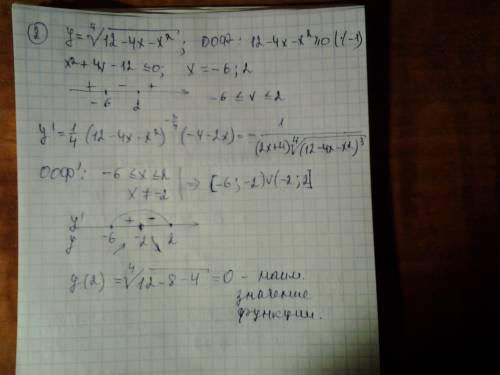 2) y = ⁴√(12-4x-x²) ; ООФ: 12-4x-x² ≥ 0 | (-1)
x²+4x-12 ≤ 0; x = -6; 2
+ - +
-6 2 -6 ≤ x ≤ 2
y' = 1/4 (12-4x-x²)^(-3/4) (-4-2x) = - 1/((2x+4) ⁴√(12-4x-x²)³)
ООФ': -6 ≤ x ≤ 2
x ≠ -2 | ⇒ [-6; -2) ∪ (-2; 2]
y' + -
y -6 -2 2
↗ ↘
y(2) = ⁴√(12-8-4) = 0 - наим.
значение
функции.